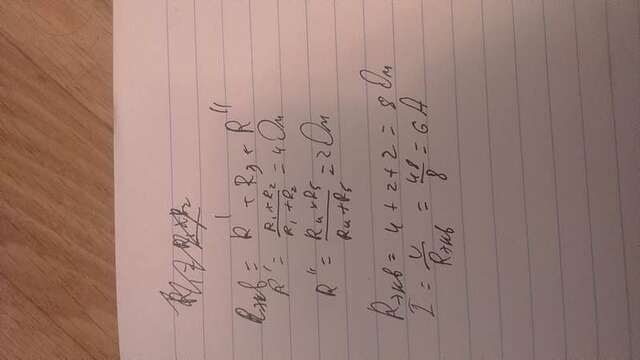 Rэкв = R' + R3 + R''
R' = (R1 + R2)/(R1 + R2) = 4 Ом
R'' = (R4 × R5)/(R4 + R5) = 2 Ом
Rэкв = 4 + 2 + 2 = 8 Ом
I = U/Rэкв = 48/8 = 6 А